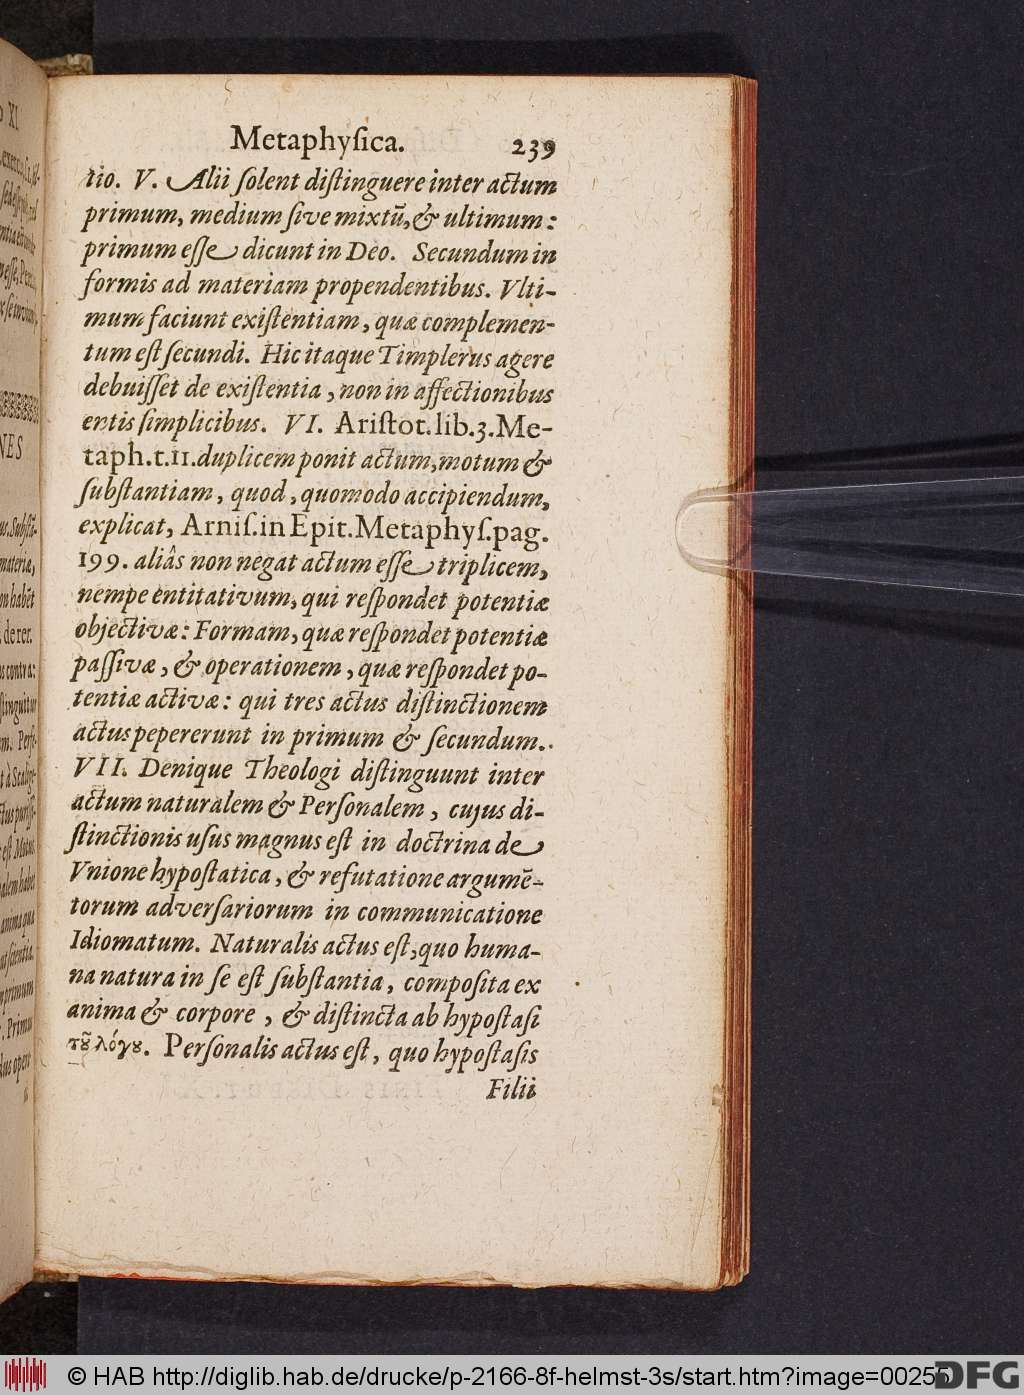 Metaphyſica. 239
tio. V. Alii ſolent diſtinguere inter actum
primum, medium ſive mixtũ, & ultimum:
primum eſſe dicunt in Deo. Secundum in
formis ad materiam propendentibus. Vlti-
mum faciunt exiſtentiam, quæ complemen-
tum eſt ſecundi. Hic itaque Timplerus agere
debuiſſet de exiſtentia, non in affectionibus
entis ſimplicibus. VI. Ariſtot. lib. 3. Me-
taph. t. 11. duplicem ponit actum, motum &
ſubſtantiam, quod, quomodo accipiendum,
explicat, Arniſ. in Epit. Metaphyſ. pag.
199. aliâs non negat actum eſſe triplicem,
nempe entitativum, qui reſpondet potentiæ
objectivæ: Formam, quæ reſpondet potentiæ
paſſivæ, & operationem, quæ reſpondet po-
tentiæ activæ: qui tres actus diſtinctionem
actus pepererunt in primum & ſecundum.
VII. Denique Theologi diſtinguunt inter
actum naturalem & Perſonalem, cujus di-
ſtinctionis uſus magnus eſt in doctrina de
Vnione hypoſtatica, & refutatione argumẽ-
torum adverſariorum in communicatione
Idiomatum. Naturalis actus eſt, quo huma-
na natura in ſe eſt ſubſtantia, compoſita ex
anima & corpore, & diſtincta ab hypoſtaſi
τȣ͂ λόγȣ. Perſonalis actus eſt, quo hypoſtaſis
Filii
© HAB http://diglib.hab.de/drucke/p-2166-8f-helmst-3s/start.htm?image=00255
DFG